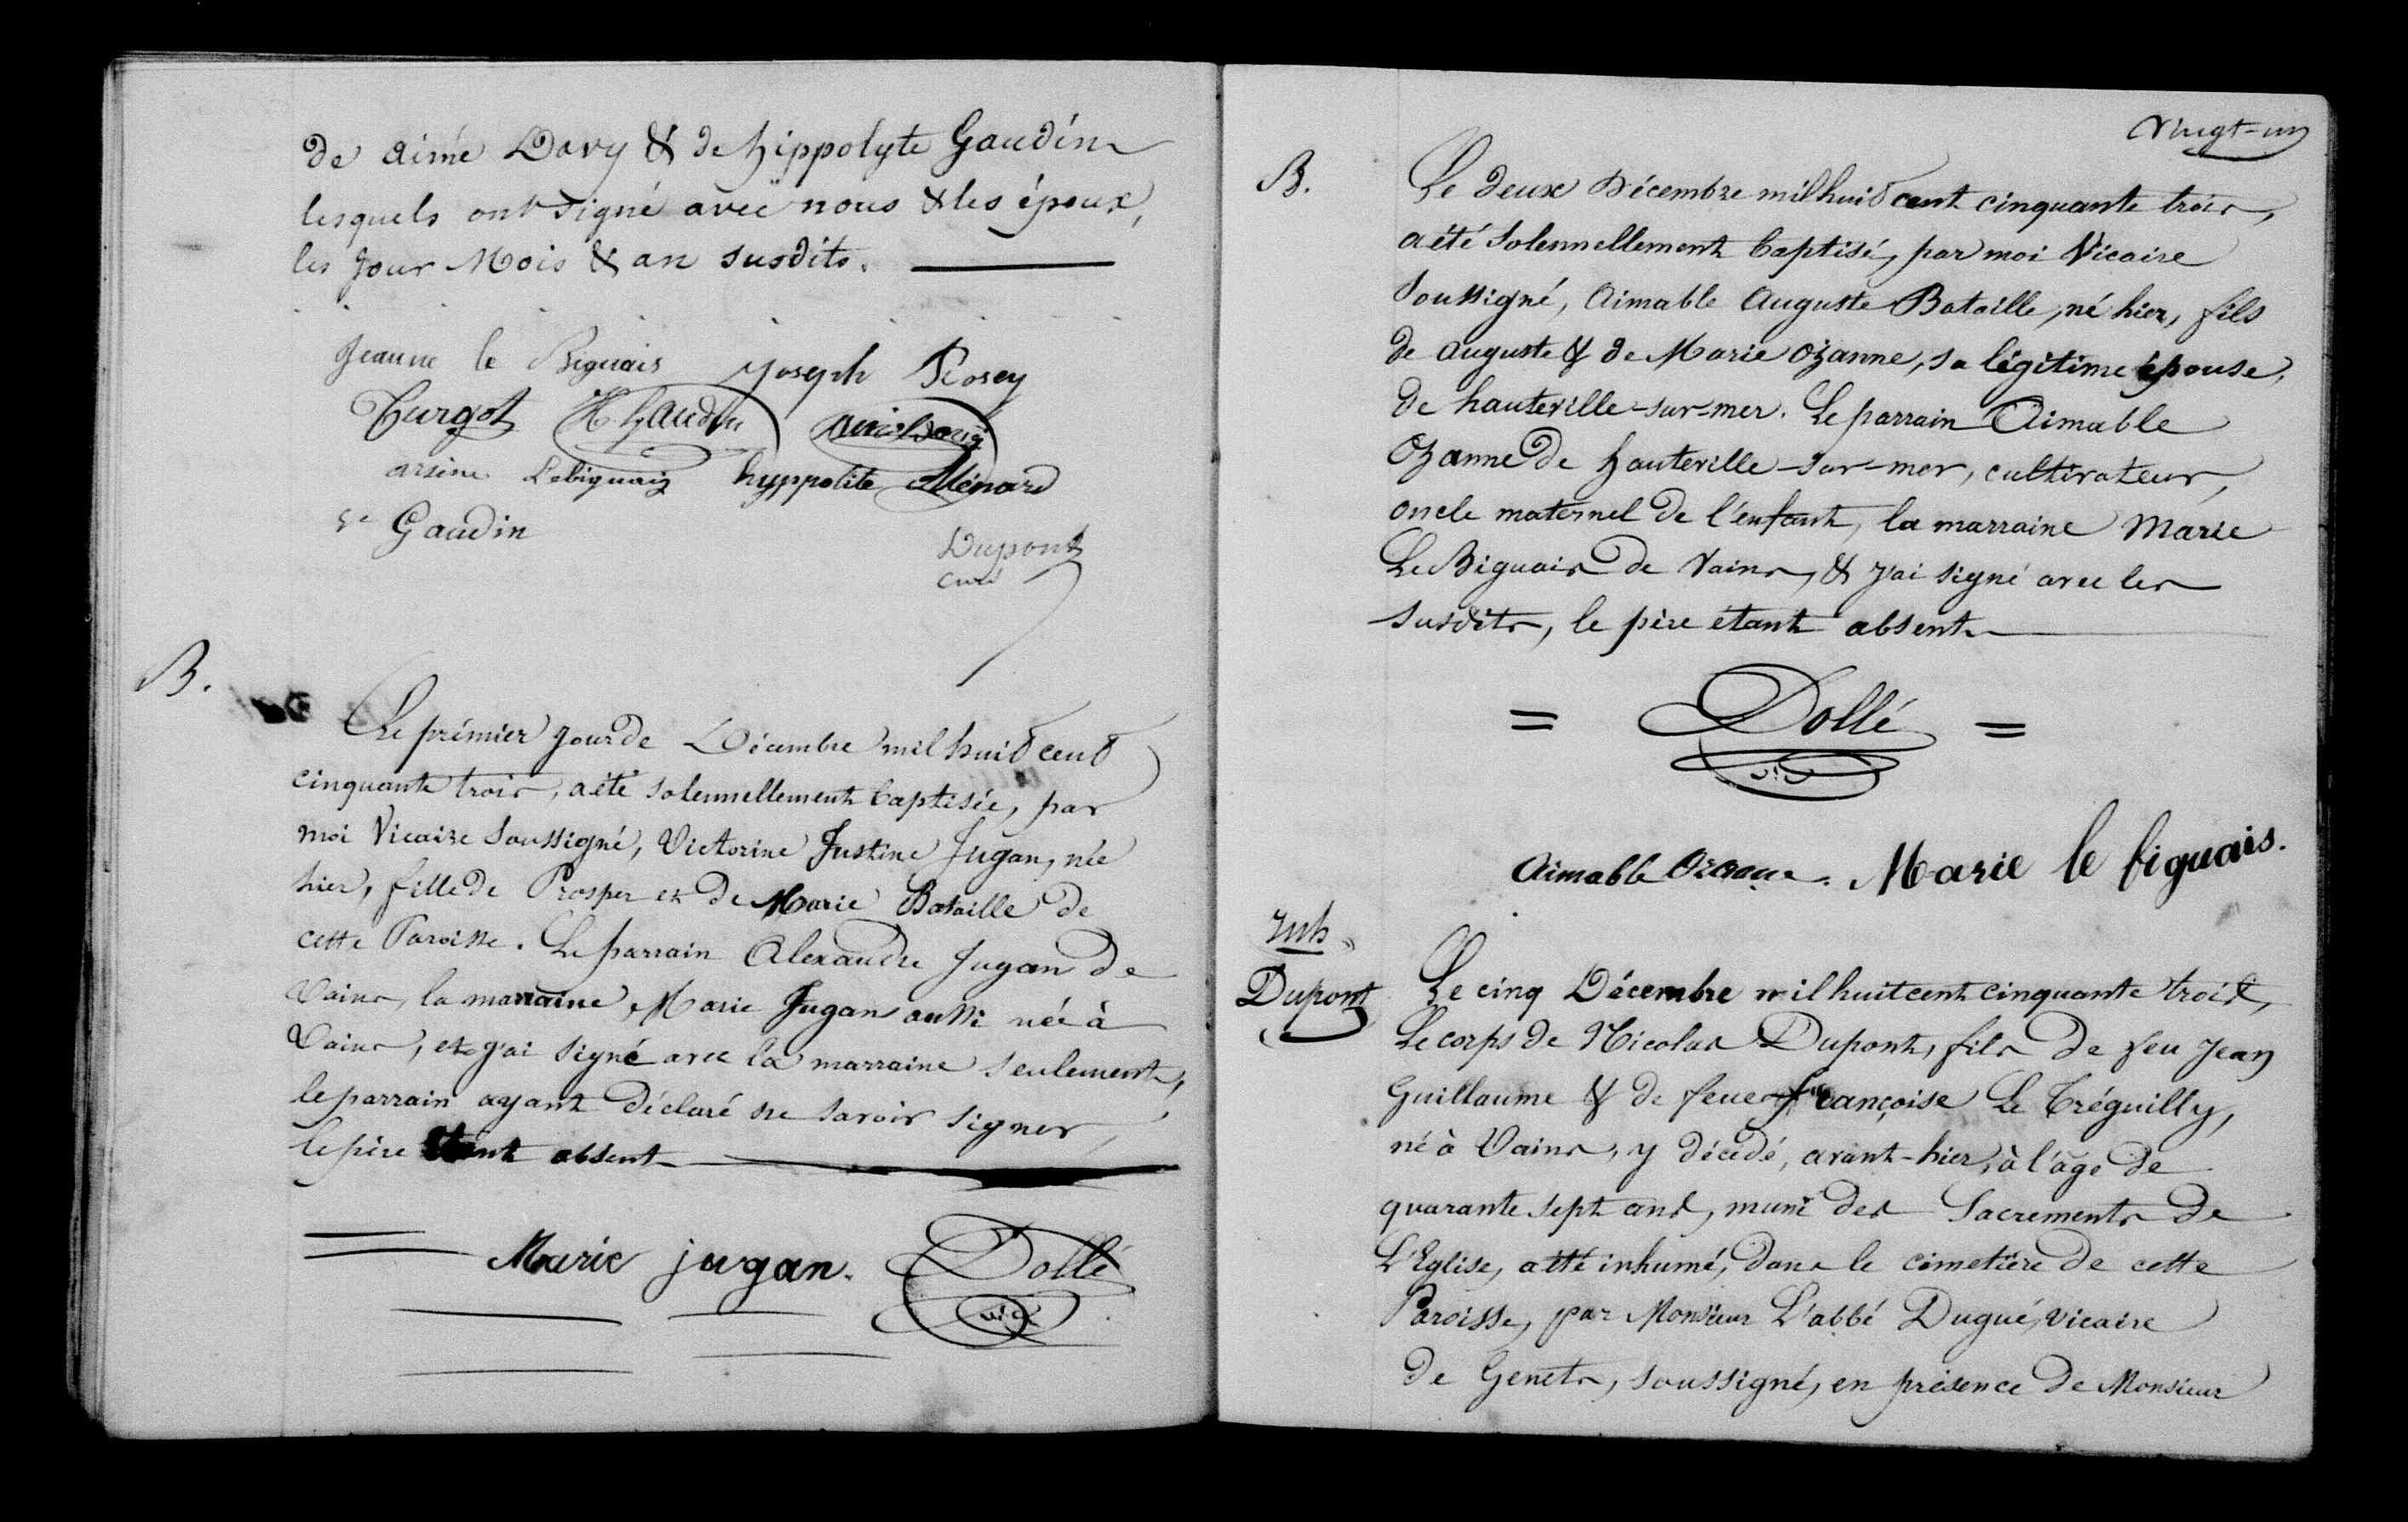 de Aimé Davy & de hippolyte Gaudin
lesquels ont signé avec nous & les époux,
les Jour Mois & an susdits.
Jeanne le Biguais Joseph Rosey
Turgot H. Gaudin
arsine Lebiguais hyppolite Ménard
Gaudin
Dupont
curé
B.
Le prémier jour de Décembre mil huit cent
cinquante trois, a été solennellement baptisée, par
moi Vicaire Soussigné, Victorine Justine Jugan, née
hier, fille de Prosper et de Marie Bataille de
cette Paroisse. Le parrain Alexandre Jugan de
Vains, la marraine, Marie Jugan aussi née à
Vains, et j'ai signé avec la marraine seulement,
le parrain ayant déclaré ne savoir signer,
le père étant absent
Marie jugan. Dollé
vic
Vingt-un
B.
Le deux Décembre mil huit cent cinquante trois,
a été solennellement baptisé, par moi Vicaire
Soussigné, Aimable Auguste Bataille, né hier, fils
de Auguste & de Marie Ozanne, sa légitime épouse,
de hauteville-sur-mer. Le parrain Aimable
Ozanne de hauteville-sur-mer, cultivateur,
oncle maternel de l'enfant, la marraine Marie
Le Biguais de Vains, & j'ai signé avec les
susdits, le père étant absent
= Dollé =
vic
Aimable Ozanne. Marie le biguais.
Inh
Dupont
Le cinq Décembre mil huit cent cinquante trois,
Le corps de Nicolas Dupont, fils de feu Jean
Guillaume & de feue françoise Le Tréguilly,
né à Vains, y décédé, avant-hier, à l'âge de
quarante sept ans, muni des Sacrements de
L'Eglise, a été inhumé, dans le cimetière de cette
Paroisse, par Monsieur L'abbé Dugué, vicaire
de Genets, soussigné, en présence de Monsieur